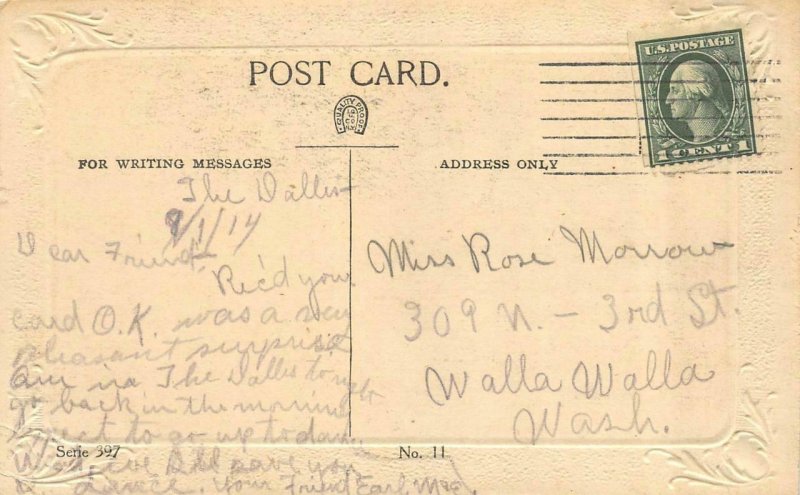 POST CARD.
QUALITY PROOF
U.S. POSTAGE
1 CENT 1
FOR WRITING MESSAGES
ADDRESS ONLY
The Dalles
9/1/14
Dear Friend,
Rec'd your
card O.K. was a very
pleasant surprise
Am in The Dalles to
go back in the morning
expect to go up to
save you
dance. Your Friend Earl
Miss Rose Morrow
309 N. – 3rd St.
Walla Walla
Wash.
Serie 397
No. 11